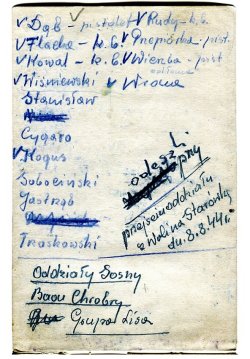 ✓Dąb ✓ - pistolet ✓Rudy - k.b.
✓Flacha - k.b. ✓Przepiórka - pist.
✓Kowal - k.b. ✓Wierzba - pist
✓Wiśniewski ✓Wrona
Stanisław
Cygaro
✓Kogus
Sobociński
Jastrząb
Traskowski
odeszli
przejściu oddziału
z Wolina Starówkę
du. 8.8.44 r.
Oddziały Sosny
Baon Chrobry
Grupa Lisa